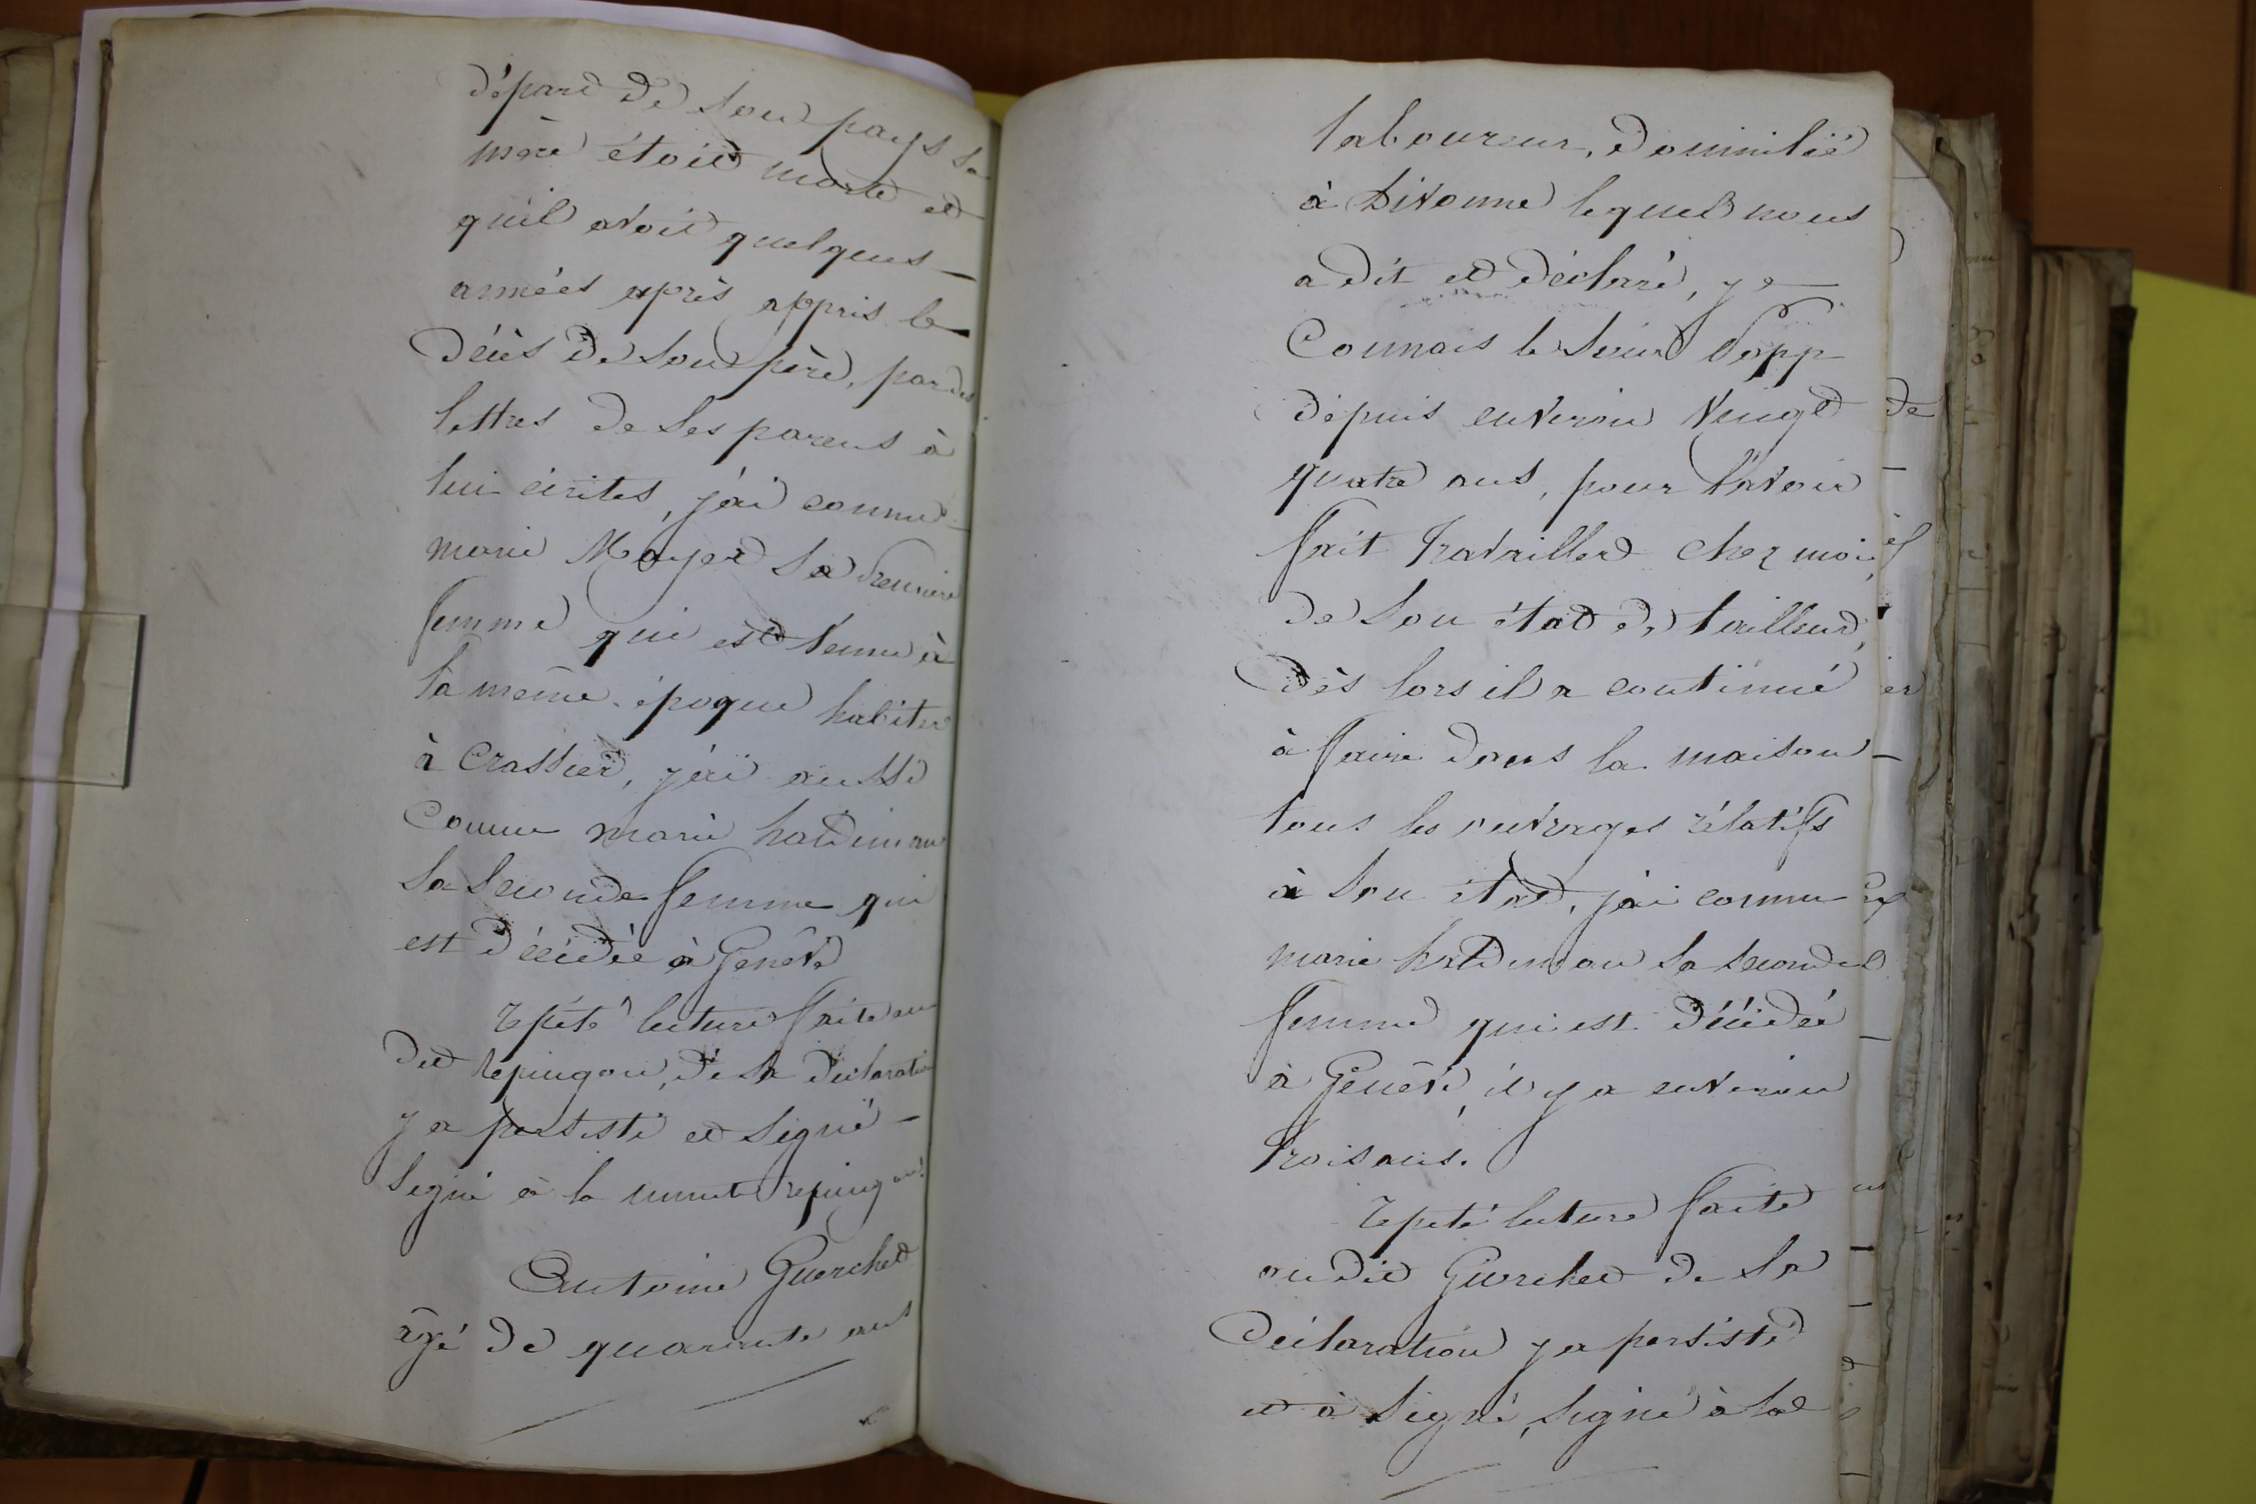 départ de son pays sa
mère étoit morte et
quil avoit quelques
années après appris le
décès de son père, par des
lettres de ses parens à
lui écrites, j'ai connu
marie Mayer sa premiere
femme qui est venue à
la même époque habiter
à Crassier, j'ai aussi
connu marie haldiman
sa seconde femme qui
est décédée à Genève
répété lecture faite au
dit repingon, de sa déclaration
y a persisté et signé
Signé à la minute repingon
Antoine Guerchet
âgé de quarante ans
laboureur, domicilié
à Divonne lequel nous
a dit et déclaré, je
Connais le Sieur Popp
dépuis environ vingt
quatre ans, pour l'avoir
fait travailler chez moi
de son état de tailleur,
dès lors il a continué
à faire dans la maison
tous les ouvrages rélatifs
à son état, j'ai connu
marie haldiman sa seconde
femme qui est décédée
à Genève, il y a environ
trois ans.
répété lecture faite
au dit Guerchet de sa
déclaration y a persisté
et à signé, signé à la